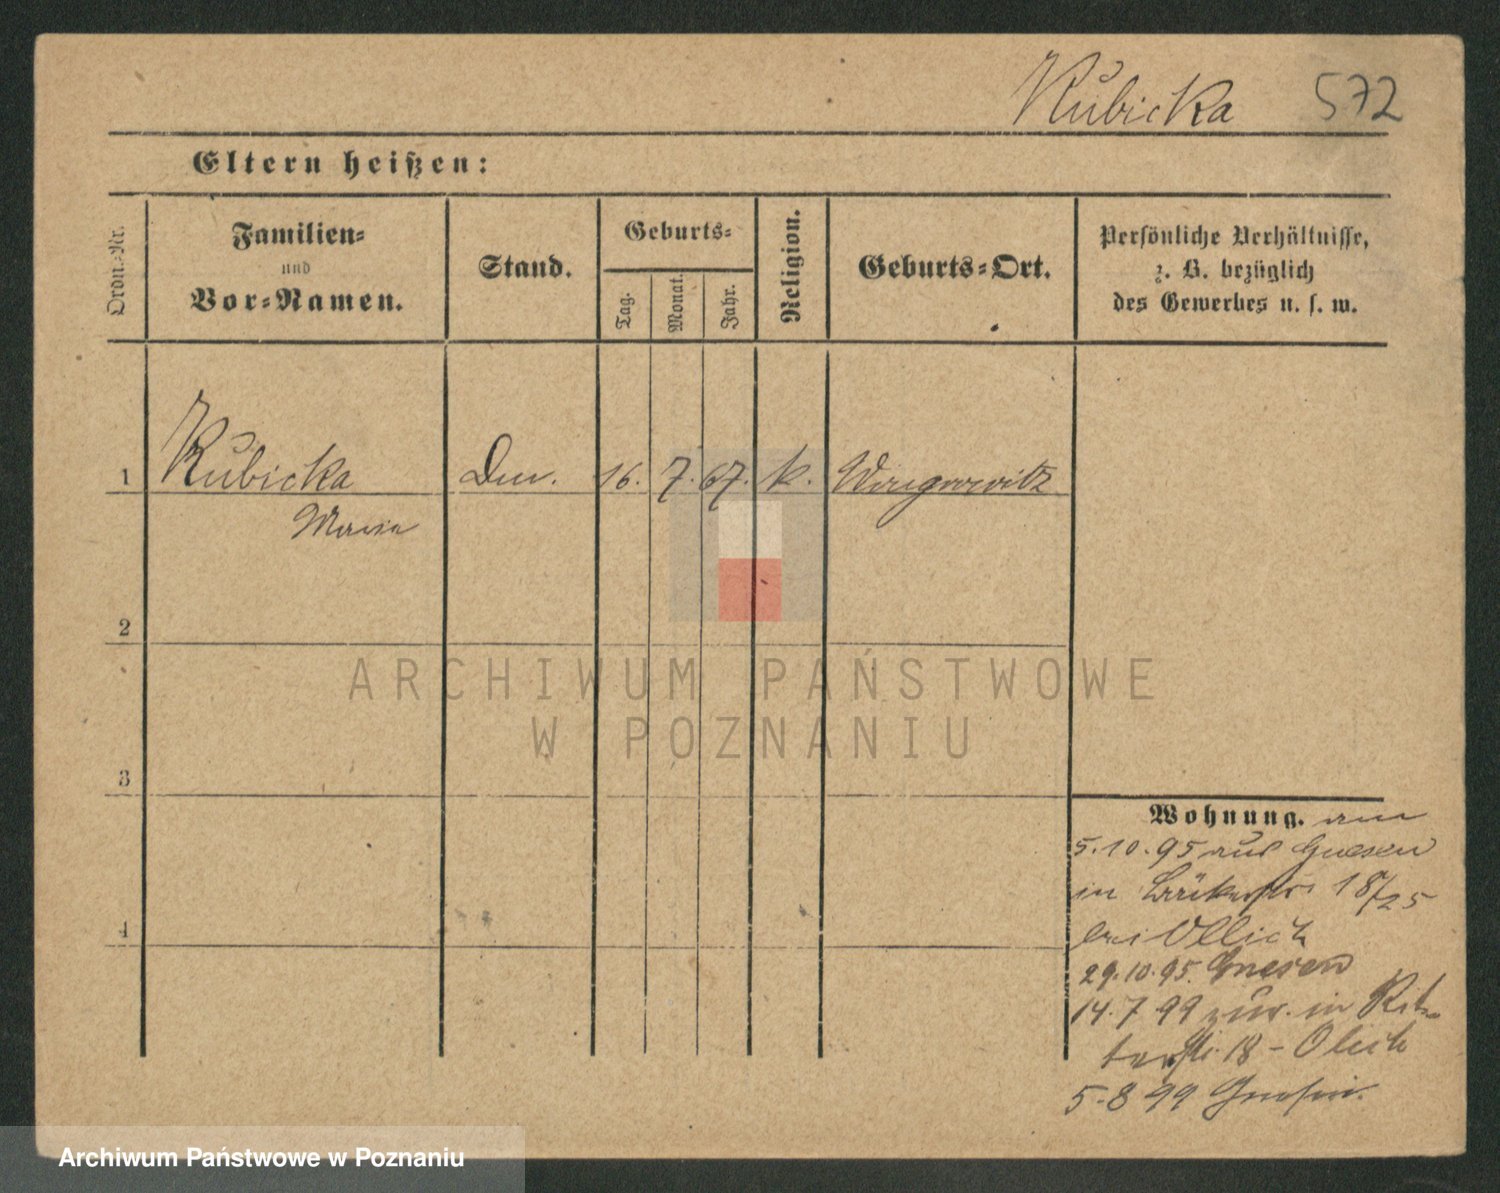 Kubicka 572
Eltern heißen:
Ordn.-Nr.
Familien-
und
Vor-Namen.
Stand.
Geburts-
Tag.
Monat.
Jahr.
Religion.
Geburts-Ort.
Persönliche Verhältnisse,
z. B. bezüglich
des Gewerbes u. s. w.
1 Kubicka 16. 7. 67. k. Wongrowitz
Maria
2
3
4
Wohnung. am
5.10.95 aus Gnesen
in Bäckerstr. 18/25
bei Ollich
29.10.95. Gnesen
14.7 99 zur. in Rit-
terstr. 18 - Olich
5-8 99 Gnesen.
ARCHIWUM PAŃSTWOWE
W POZNANIU
Archiwum Państwowe w Poznaniu